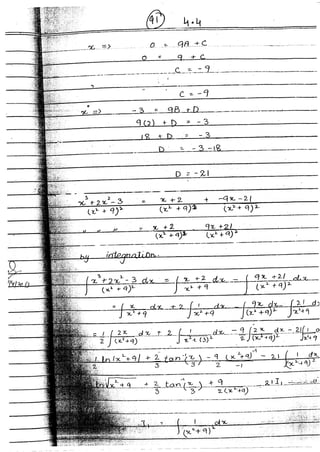 91 4.4
x => 0 = 9A + C
0 = 9 + C
C = -9
C = -9
x° => -3 = 9B + D
9(2) + D = -3
18 + D = -3
D = -3 -18
D = -21
x³+2x²-3 / (x²+9)² = x+2 / (x²+9) + -9x-21 / (x²+9)²
" " " = x+2 / (x²+9) - 9x+21 / (x²+9)²
by integration.
∫ x³+2x²-3 dx / (x²+9)² = ∫ x+2 / x²+9 dx - ∫ 9x+21 / (x²+9)² dx
= ∫ x / x²+9 dx + 2 ∫ 1 / x²+9 dx - ∫ 9x dx / (x²+9)² - ∫ 21 d / x²+9
= 1/2 ∫ 2x / (x²+9) dx + 2 ∫ 1 / x²+(3)² dx - 9/2 ∫ 2x / (x²+9)² dx - 21 ∫ 1 / x²+9
1/2 ln(x²+9) + 2/3 tan⁻¹(x/3) - 9/2 (x²+9)⁻¹ / -1 - 21 ∫ 1 dx / (x²+9)²
ln√x²+9 + 2/3 tan⁻¹(x/3) + 9 / 2(x²+9) - 21 I₁
I₁ = ∫ 1 / (x²+9)² dx